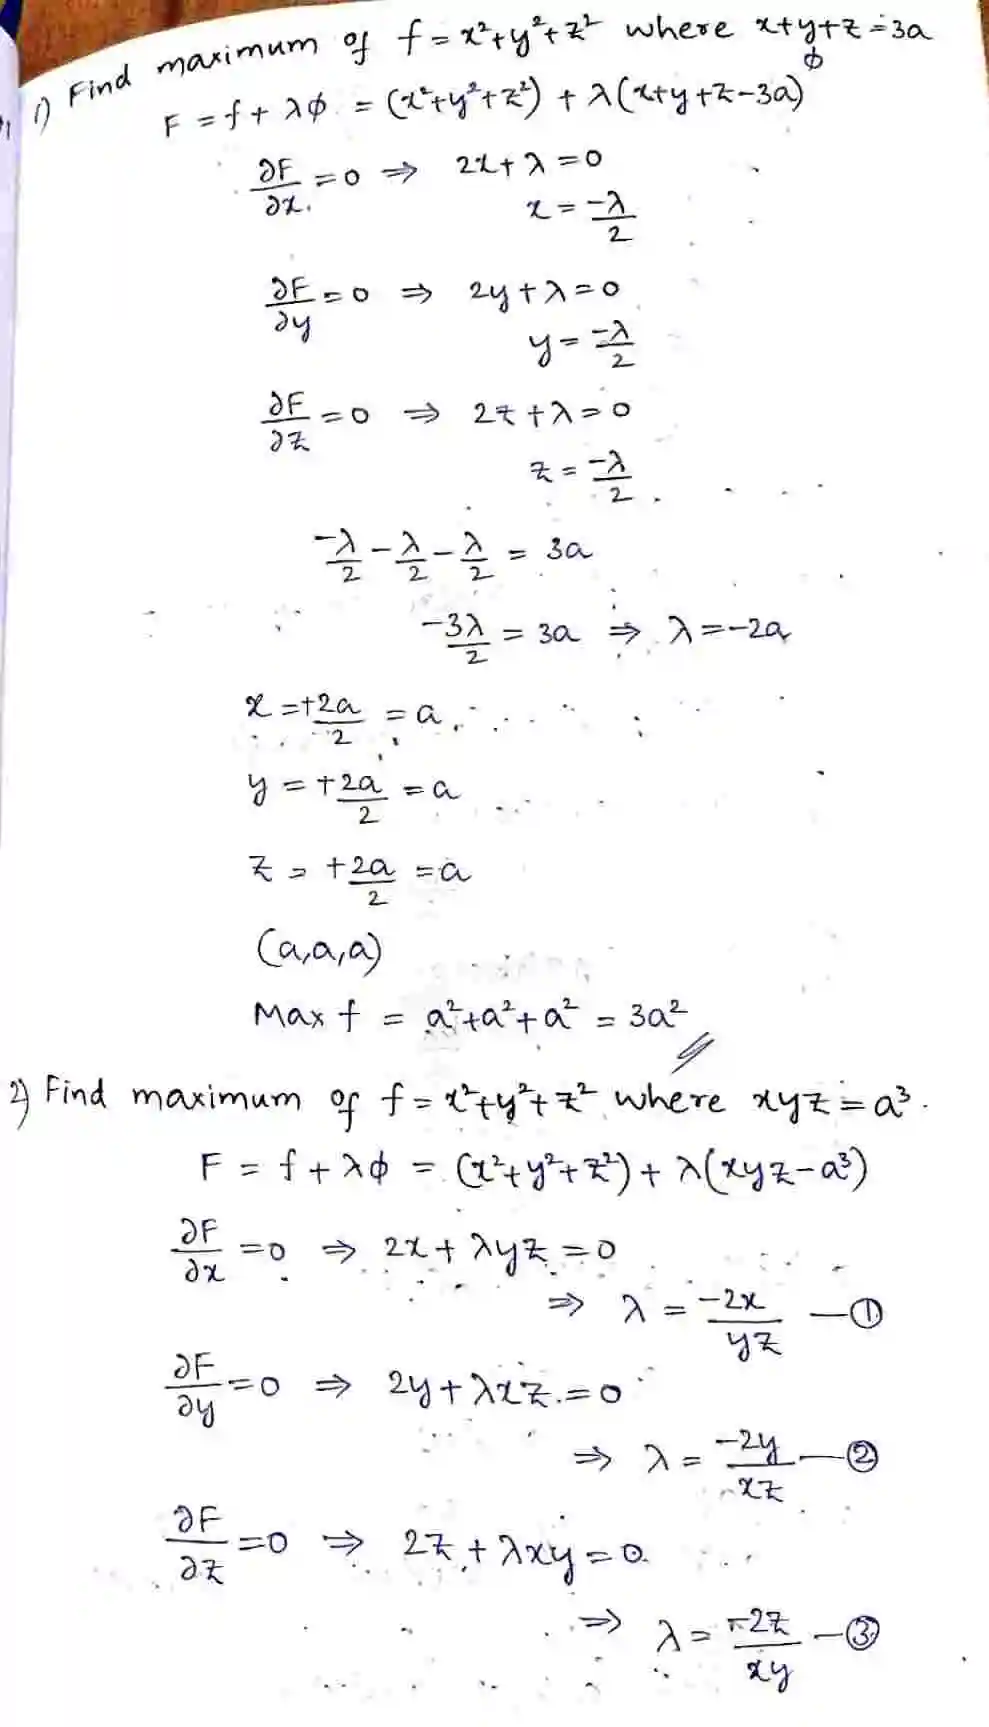 1) Find maximum of f = x²+y²+z² where x+y+z = 3a
F = f + λϕ = (x²+y²+z²) + λ(x+y+z-3a) ϕ
∂F/∂x = 0 ⇒ 2x + λ = 0
x = -λ/2
∂F/∂y = 0 ⇒ 2y + λ = 0
y = -λ/2
∂F/∂z = 0 ⇒ 2z + λ = 0
z = -λ/2
-λ/2 - λ/2 - λ/2 = 3a
-3λ/2 = 3a ⇒ λ = -2a
x = +2a/2 = a
y = +2a/2 = a
z = +2a/2 = a
(a,a,a)
Max f = a²+a²+a² = 3a²
2) Find maximum of f = x²+y²+z² where xyz = a³.
F = f + λϕ = (x²+y²+z²) + λ(xyz-a³)
∂F/∂x = 0 ⇒ 2x + λyz = 0
⇒ λ = -2x/yz —①
∂F/∂y = 0 ⇒ 2y + λxz = 0
⇒ λ = -2y/xz —②
∂F/∂z = 0 ⇒ 2z + λxy = 0
⇒ λ = -2z/xy —③